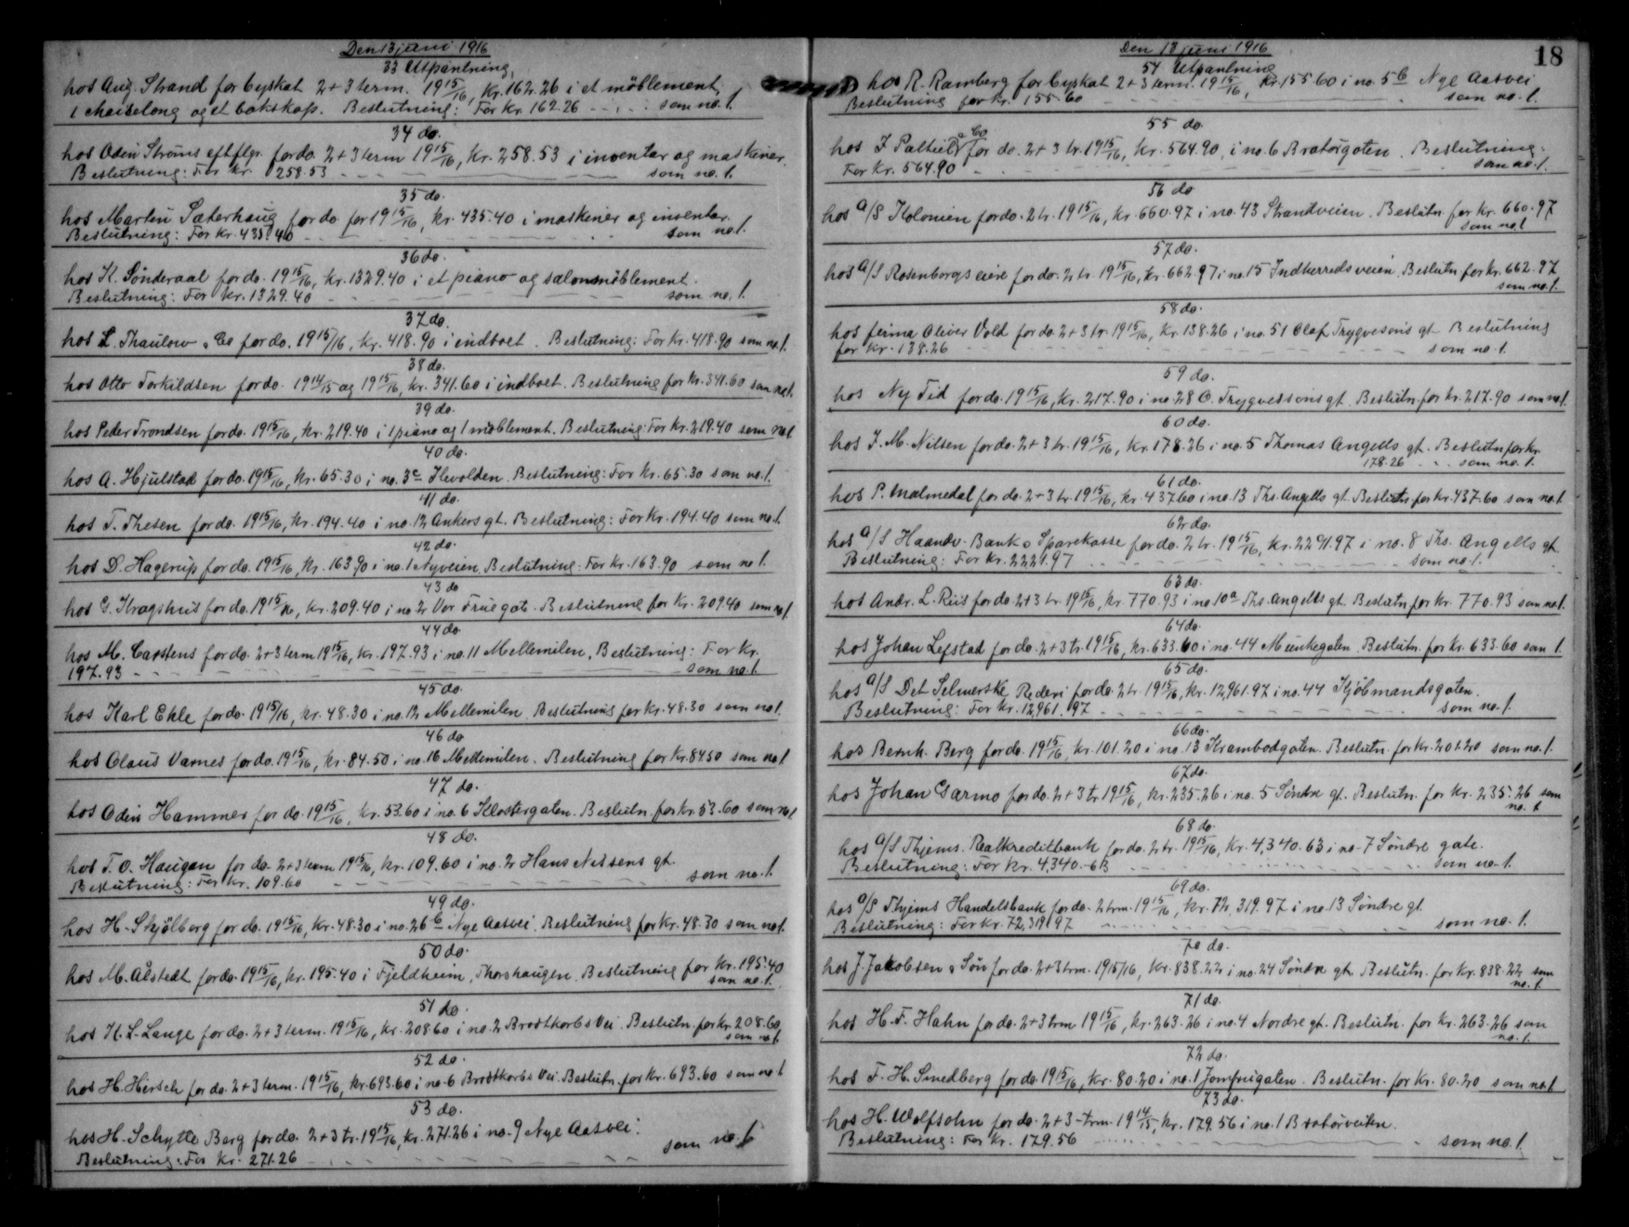 Den 13 juni 1916
33 Utpantning,
hos Aug. Strand for byskat 2+3 term. 1915/16, kr. 162.26 i et möblement,
1 chaiselong og et bokskap. Beslutning: For kr. 162.26 - . - . - som no. 1.
34 do.
hos Odin Ströms eftflgr. for do. 2+3 term 1915/16, kr. 258.53 i inventar og maskiner.
Beslutning: For kr. 258.53 - - - - som no. 1.
35 do.
hos Martin Sæterhaug for do. for 1915/16, kr. 435.40 i maskiner og inventar.
Beslutning: For kr. 435.40 - - - som no 1.
36 do.
hos K. Sönderaal for do. 1915/16, kr. 1329.40 i et piano og salonmöblement.
Beslutning: For kr. 1329.40 - - - - som no. 1.
37 do.
hos L. Thaulow & Co for do. 1915/16, kr. 418.90 i indboet. Beslutning: For kr. 418.90 som no. 1.
38 do.
hos Otto Torkildsen for do. 1914/15 og 1915/16, kr. 341.60 i indboet. Beslutning for kr. 341.60 som no 1.
39 do.
hos Peder Trondsen for do. 1915/16, kr. 219.40 i 1 piano og 1 möblement. Beslutning: For kr. 219.40 som no 1
40 do.
hos A. Hjulstad for do. 1915/16, kr. 65.30 i no. 3c Ilevolden. Beslutning: For kr. 65.30 som no. 1.
41 do.
hos T. Thesen for do. 1915/16, kr. 194.40 i no. 12 Ankers gt. Beslutning: For kr. 194.40 som no. 1.
42 do.
hos D. Hagerup for do. 1915/16, kr. 163.90 i no. 1 Nyveien. Beslutning: For kr. 163.90 som no 1.
43 do
hos G. Kragshus for do. 1915/16, kr. 209.40 i no. 2 Vor Frue gate. Beslutning for kr. 209.40 som no 1.
44 do
hos M. Carstens for do. 2+3 term 1915/16, kr. 197.93 i no. 11 Mellemilen. Beslutning: For kr.
197.93 - - - - som no. 1.
45 do.
hos Karl Ekle for do. 1915/16, kr. 48.30 i no. 12 Mellemilen. Beslutning for kr. 48.30 som no 1.
46 do
hos Olaus Varnes for do. 1915/16, kr. 84.50 i no. 16 Mellemilen. Beslutning for kr. 84.50 som no 1.
47 do.
hos Odin Hammer for do. 1915/16, kr. 53.60 i no. 6 Klostergaten. Beslutn. for kr. 53.60 som no 1
48 do.
hos T. O. Haugan for do. 2+3 term 1915/16, kr. 109.60 i no. 2 Hans Nissens gt.
Beslutning: For kr. 109.60 - - - - som no. 1.
49 do.
hos H. Skjölberg for do. 1915/16, kr. 48.30 i no. 26b Nye Aasvei. Beslutning for kr. 48.30 som no 1.
50 do.
hos M. Ålstedt for do. 1915/16, kr. 195.40 i Fjeldheim, Thorshaugen. Beslutning for kr. 195.40
som no. 1.
51 do
hos K. L. Lange for do. 2+3 term. 1915/16, kr. 208.60 i no. 2 Brodtkorbs Vei. Beslutn. for kr. 208.60
som no 1.
52 do.
hos H. Hirsch for do. 2+3 term. 1915/16, kr. 693.60 i no. 6 Brodtkorbs Vei. Beslutn. for kr. 693.60 som no 1
53 do.
hos H. Schytte Berg for do. 2+3 tr. 1915/16, kr. 271.26 i no. 9 Nye Aasvei.
Beslutning: For kr. 271.26 - - - - som no. 1
18
Den 13 juni 1916
54 Utpantning
hos R. Ramberg for byskat 2+3 term. 1915/16, kr. 155.60 i no. 5b Nye Aasvei
Beslutning for kr. 155.60 - - - som no. 1.
55 do.
hos I. Paltiel & Co for do. 2+3 tr. 1915/16, kr. 564.90, i no. 6 Bratörgaten. Beslutning:
For kr. 564.90 - - - som no. 1.
56 do
hos A/S Kolonien for do. 2 tr. 1915/16, kr. 660.97 i no. 43 Strandveien. Beslutn. for kr. 660.97
som no. 1
57 do.
hos A/S Rosenborgs eiere for do. 2 tr. 1915/16, kr. 662.97 i no. 15 Indherredsveien. Beslutn. for kr. 662.97
som no. 1.
58 do.
hos firma Oliver Vold for do. 2+3 tr. 1915/16, kr. 138.26 i no. 51 Olaf Trygvesons gt. Beslutning
for kr. 138.26 - - - - som no. 1.
59 do.
hos Ny Tid for do. 1915/16, kr. 217.90 i no. 28 O. Trygvessons gt. Beslutn. for kr. 217.90 som no 1.
60 do.
hos I. M. Nilsen for do. 2+3 tr. 1915/16, kr. 178.26 i no. 5 Thomas Angells gt. Beslutn. for kr.
178.26 . . . som no. 1.
61 do.
hos P. Malmedal for do. 2+3 tr. 1915/16, kr. 437.60 i no. 13 Ths. Angells gt. Beslutn. for kr. 437.60 som no. 1
62 do.
hos A/S Haandv. Bank & Sparekasse for do. 2 tr. 1915/16, kr. 2221.97 i no. 8 Ths. Angells gt.
Beslutning: For kr. 2221.97 - - - som no. 1.
63 do.
hos Andr. L. Riis for do. 2+3 tr. 1915/16, kr. 770.93 i no. 10a Ths. Angells gt. Beslutn. for kr. 770.93 som no 1.
64 do.
hos Johan Lefstad for do. 2+3 tr. 1915/16, kr. 633.60 i no. 44 Munkegaten. Beslutn. for kr. 633.60 som 1.
65 do.
hos A/S Det Selmerske Rederi for do. 2 tr. 1915/16, kr. 12,961.97 i no. 44 Kjöbmandsgaten.
Beslutning: For kr. 12,961.97 - - - som no. 1.
66 do.
hos Bernh. Berg for do. 1915/16, kr. 101.20 i no. 13 Krambodgaten. Beslutn. for kr. 201.20 som no. 1.
67 do.
hos Johan Garmo for do. 2+3 tr. 1915/16, kr. 235.26 i no. 5 Söndre gt. Beslutn. for kr. 235.26 som
no. 1
68 do.
hos A/S Thjems. Realkreditbank for do. 2 tr. 1915/16, kr. 4,340.63 i no. 7 Söndre gate.
Beslutning: For kr. 4,340.63 - - - som no. 1.
69 do.
hos A/S Thjems Handelsbank for do. 2 trm. 1915/16, kr. 72,319.97 i no. 13 Söndre gt.
Beslutning: For kr. 72,319.97 - - - som no. 1.
70 do.
hos J. Jakobsen & Sön for do. 2+3 trm. 1915/16, kr. 838.22 i no. 24 Söndre gt. Beslutn. for kr. 838.22 som
no. 1
71 do.
hos H. F. Hahn for do. 2+3 trm. 1915/16, kr. 263.26 i no. 4 Nordre gt. Beslutn. for kr. 263.26 som
no. 1.
72 do.
hos F. H. Smedberg for do. 1915/16, kr. 80.20 i no. 1 Jomfrugaten. Beslutn. for kr. 80.20 som no. 1
73 do.
hos H. Wolfsohn for do. 2+3 trm. 1914/15, kr. 179.56 i no. 1 Bratörveiten.
Beslutning: For kr. 179.56 - - - som no. 1.